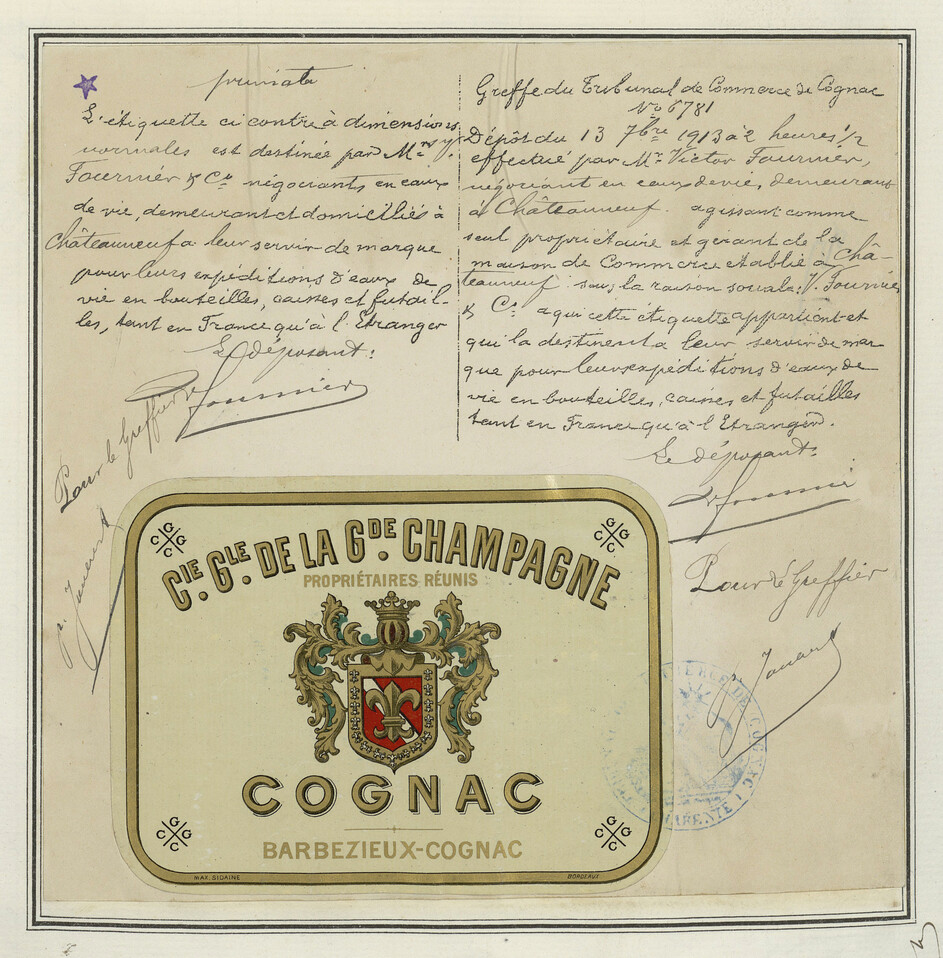 L'étiquette ci contre à dimensions
normales est destinée par Mrs V.
Fournier & Cie négociants en eaux
de vie, demeurant et domiciliés à
Châteauneuf a leur servir de marque
pour leurs expéditions d'eaux de
vie en bouteilles, caisses et futail-
les, tant en France qu'à l'Etranger
Le déposant:
Vr Fournier
Pour le Greffier
Greffe du Tribunal de Commerce de Cognac
No 6781
Dépôt du 13 7bre 1913 à 2 heures 1/2
effectué par Mr Victor Fournier,
négociant en eaux de vie, demeurant
à Châteauneuf. agissant comme
seul propriétaire et gérant de la
maison de Commerce etablie à Châ-
teauneuf sous la raison sociale: V. Fournier
& Cie a qui cette étiquette appartient et
qui la destinent a leur servir de mar
que pour leurs expéditions d'eaux de
vie en bouteilles, caisses et futailles
tant en France qu'à l'Etranger.
Le déposant:
Vr Fournier
Pour le Greffier
CIE. GLE. DE LA GDE. CHAMPAGNE
PROPRIÉTAIRES RÉUNIS
COGNAC
BARBEZIEUX-COGNAC
MAX. SIDAINE
BORDEAUX
C G G C
C G G C
C G G C
C G G C
COMMERCE DE COGNAC
CHARENTE